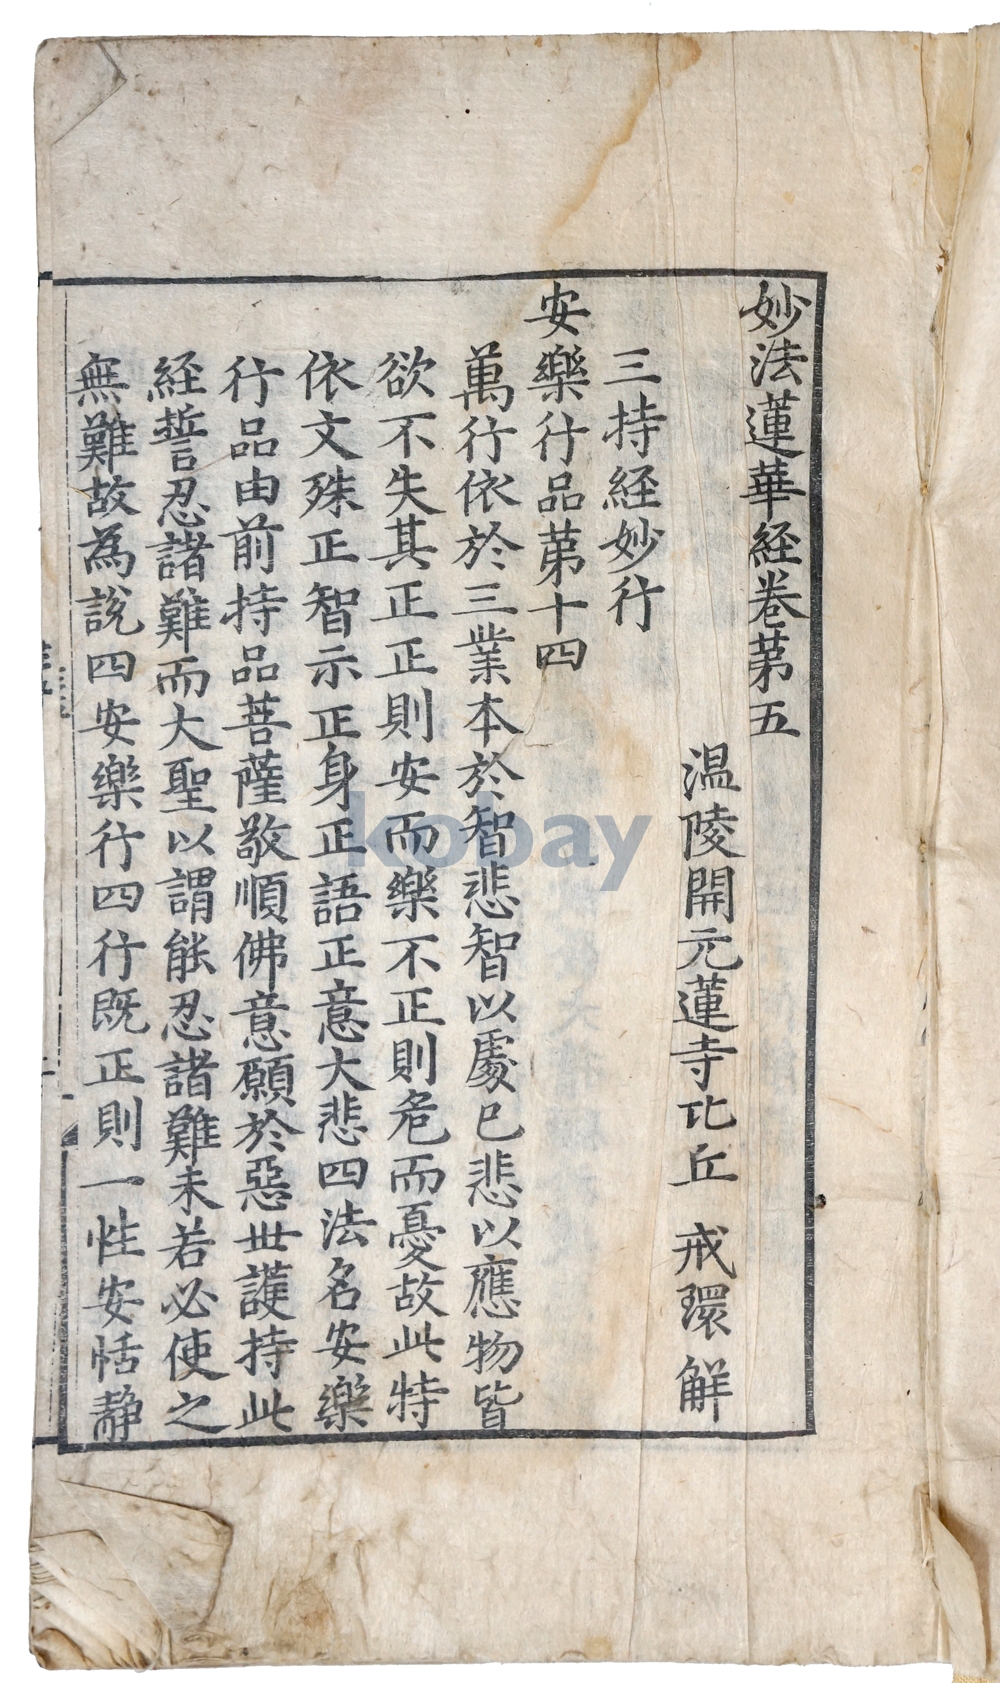 妙法蓮華経卷第五
温陵開元蓮寺比丘 戒環 解
三持経妙行
安樂行品第十四
萬行依於三業本於智悲智以處己悲以應物皆
欲不失其正正則安而樂不正則危而憂故此特
依文殊正智示正身正語正意大悲四法名安樂
行品由前持品菩薩敬順佛意願於惡世護持此
経誓忍諸難而大聖以謂能忍諸難未若必使之
無難故為說四安樂行四行既正則一性安恬靜
kobay